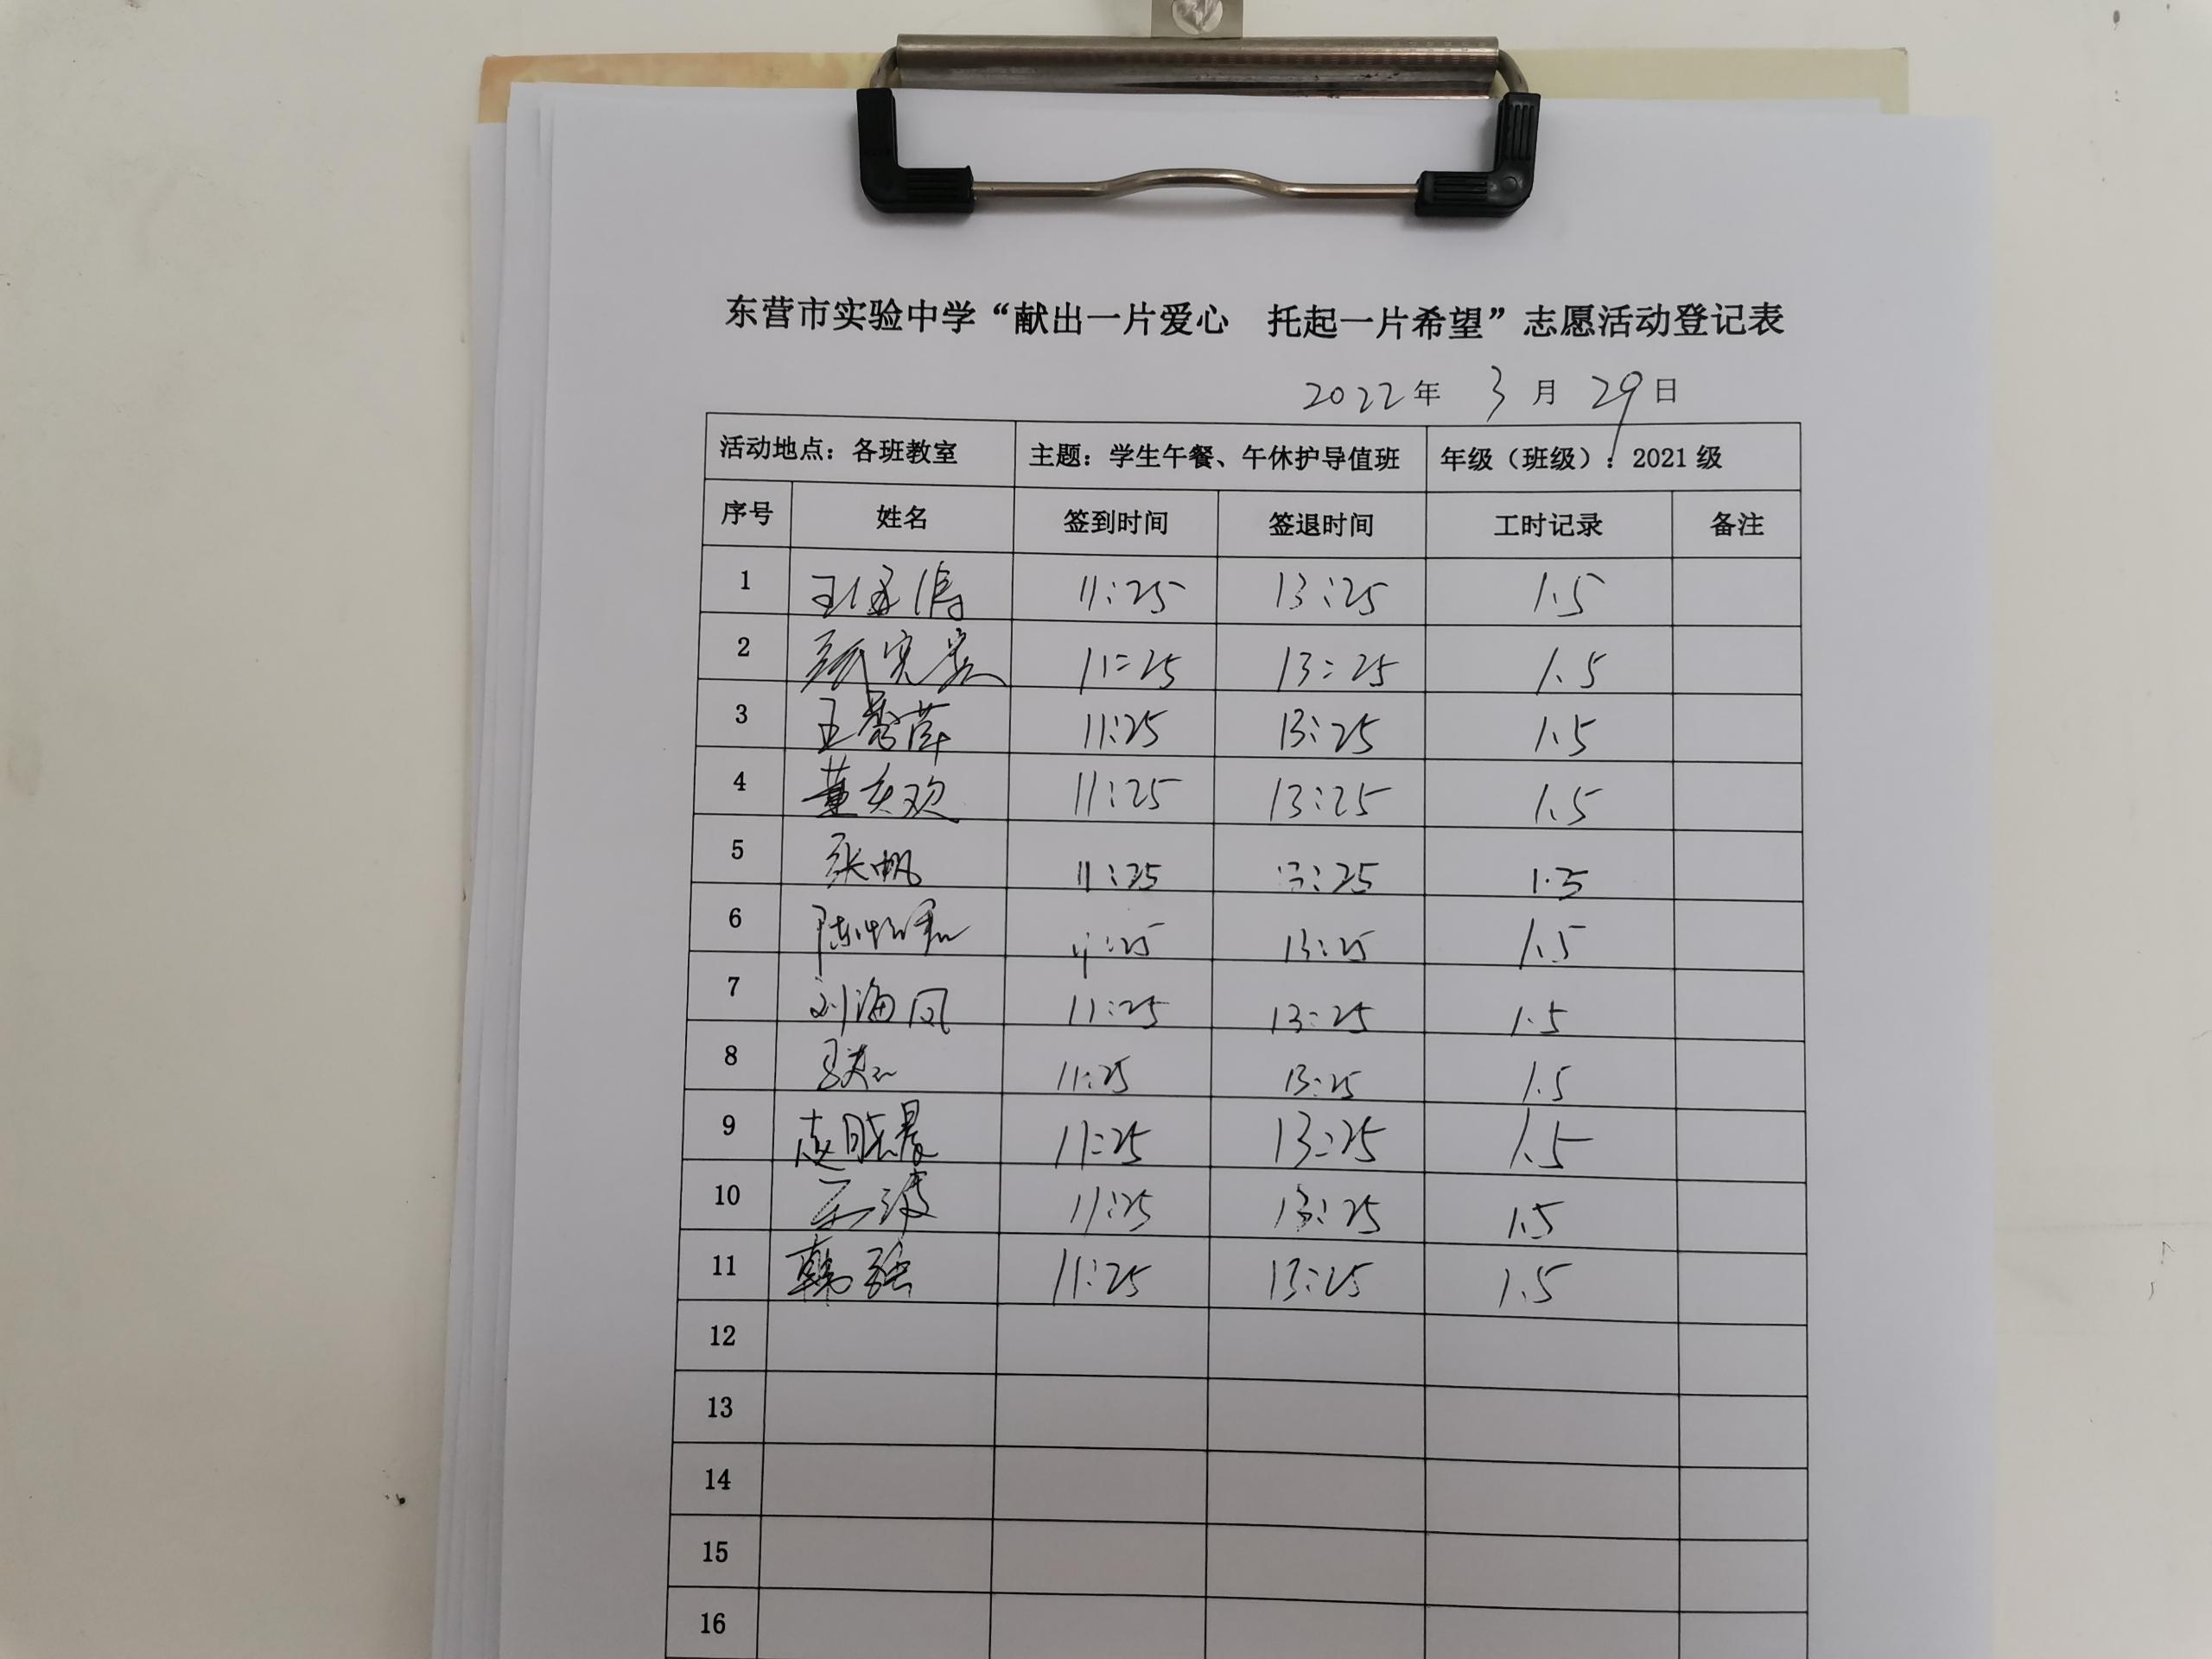 东营市实验中学“献出一片爱心 托起一片希望”志愿活动登记表
2022年 3月 29日
活动地点：各班教室 主题：学生午餐、午休护导值班 年级（班级）：2021级
序号 姓名 签到时间 签退时间 工时记录 备注
1 11:25 13:25 1.5
2 11:25 13:25 1.5
3 王秀萍 11:25 13:25 1.5
4 11:25 13:25 1.5
5 张帆 11:25 13:25 1.5
6 11:25 13:25 1.5
7 刘海凤 11:25 13:25 1.5
8 11:25 13:25 1.5
9 赵晓晨 11:25 13:25 1.5
10 王波 11:25 13:25 1.5
11 韩强 11:25 13:25 1.5
12
13
14
15
16